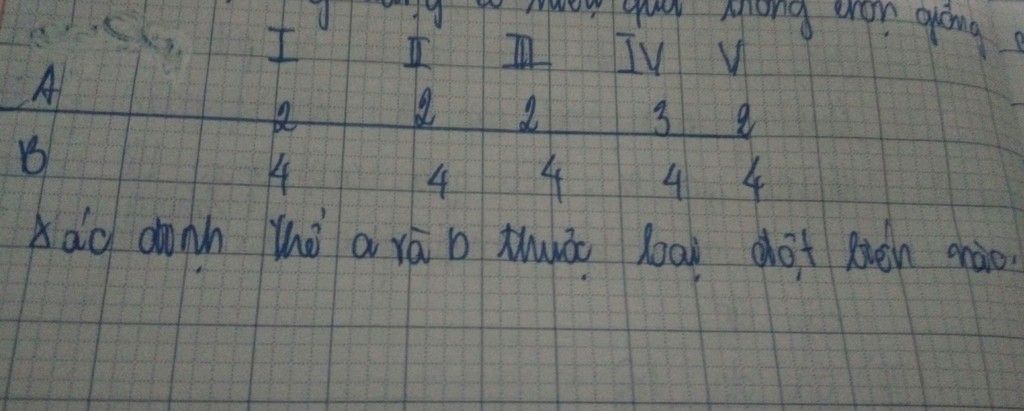 không chọn giống
I II III IV V
A 2 2 2 3 2
B 4 4 4 4 4
Xác định thể a và b thuộc loại đột biến nào.